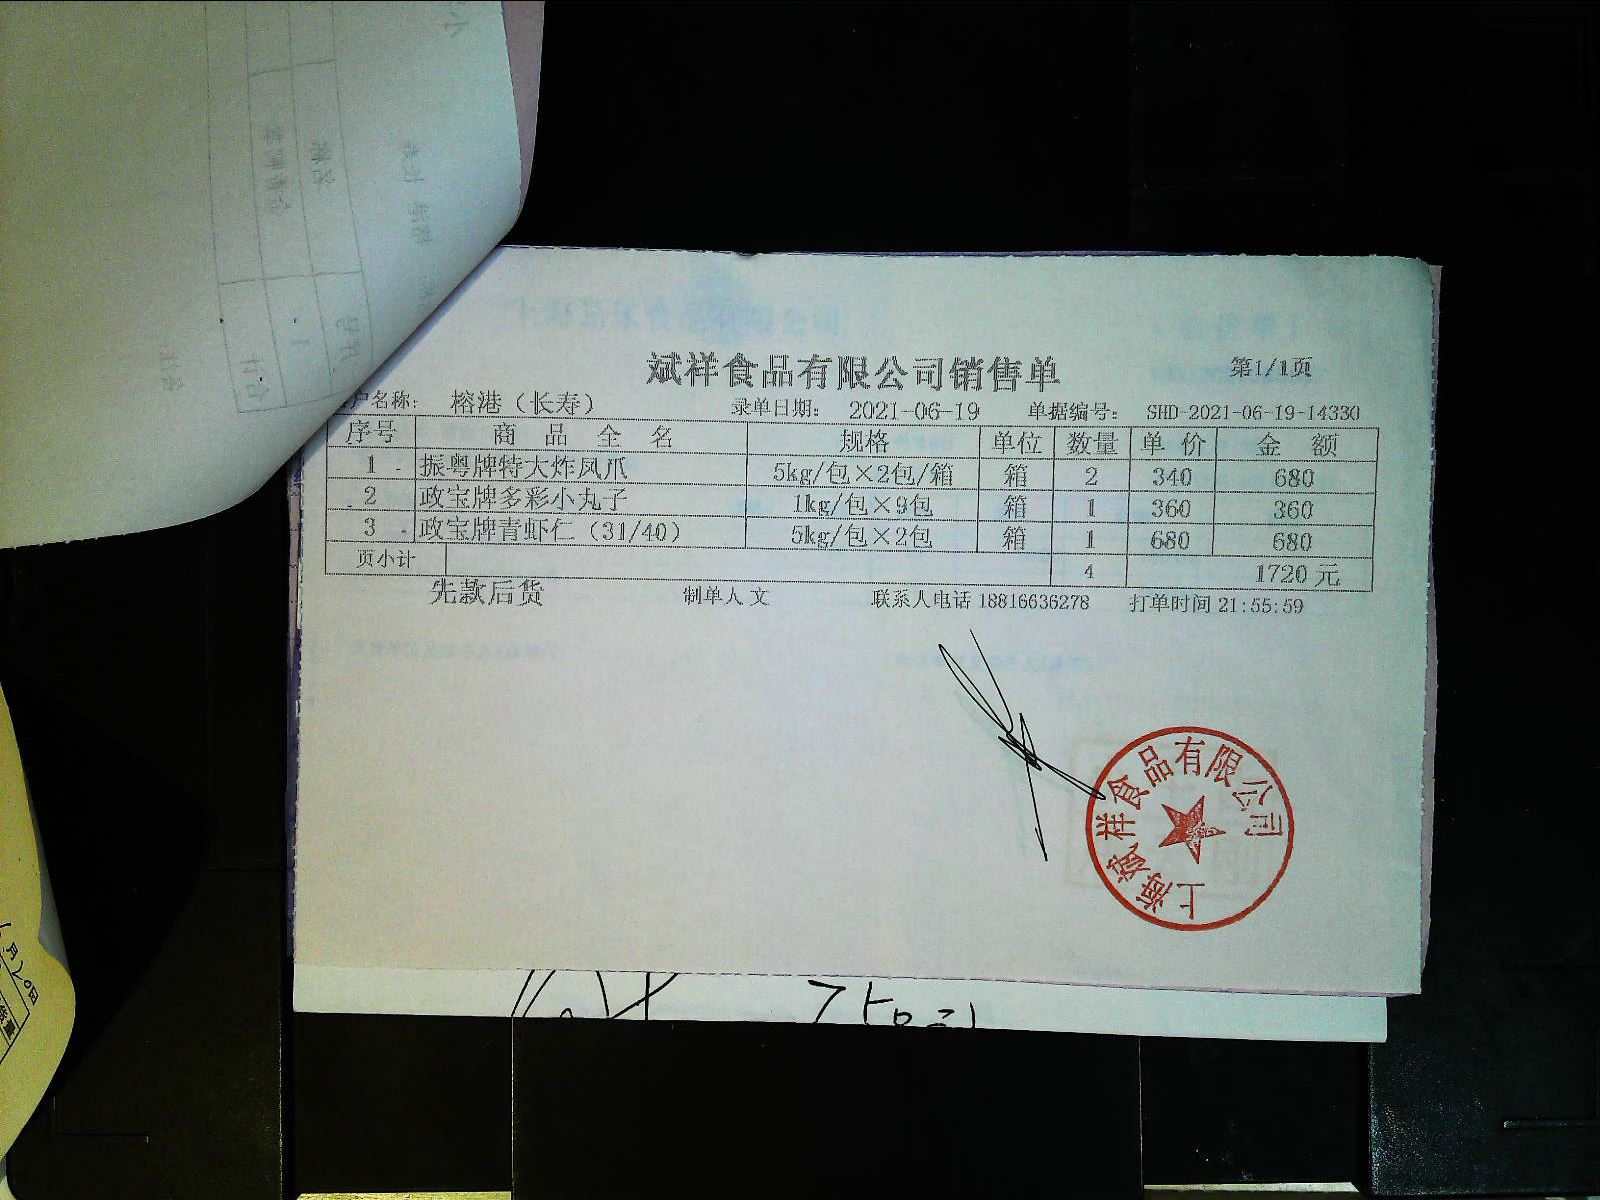 斌祥食品有限公司销售单
第1/1页
户名称: 榕港（长寿） 录单日期: 2021-06-19 单据编号: SHD-2021-06-19-14330
序号 商品全名 规格 单位 数量 单价 金额
1 振粤牌特大炸凤爪 5kg/包×2包/箱 箱 2 340 680
2 政宝牌多彩小丸子 1kg/包×9包 箱 1 360 360
3 政宝牌青虾仁（31/40） 5kg/包×2包 箱 1 680 680
页小计 4 1720 元
先款后货 制单人 文 联系人电话 18816636278 打单时间 21:55:59
上海斌祥食品有限公司
月20日